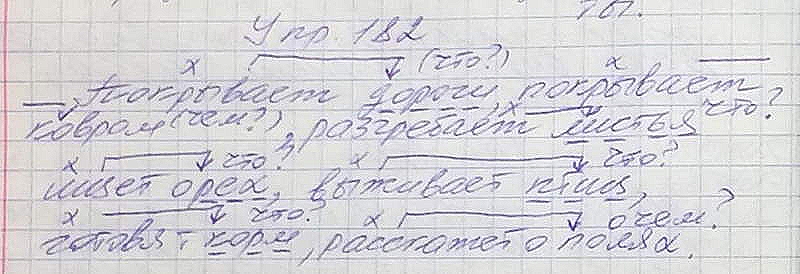 ты.
Упр. 182
х (что?) х
Покрывает дороги, покрывает
ковром (чем?), разгребает листья что?
х что? х что?
ищет орех, выживает птиц,
х что? х о чем?
готовят корм, расскажет о полях.